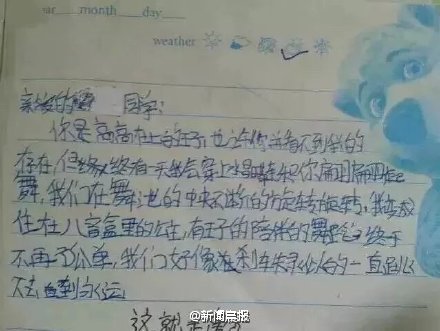 ear month day
weather
亲爱的 同学:
你是高高在上的王子,也许你并看不到我的
存在,但终有一天我会穿上水晶鞋和你翩翩起
舞,我们在舞池的中央不断的旋转旋转,我
住在八音盒里的公主,有王子的陪伴的舞蹈终于
不再孤单,我们好像刹车失灵似的一直跳下
去直到永远
@新闻晨报
这就是